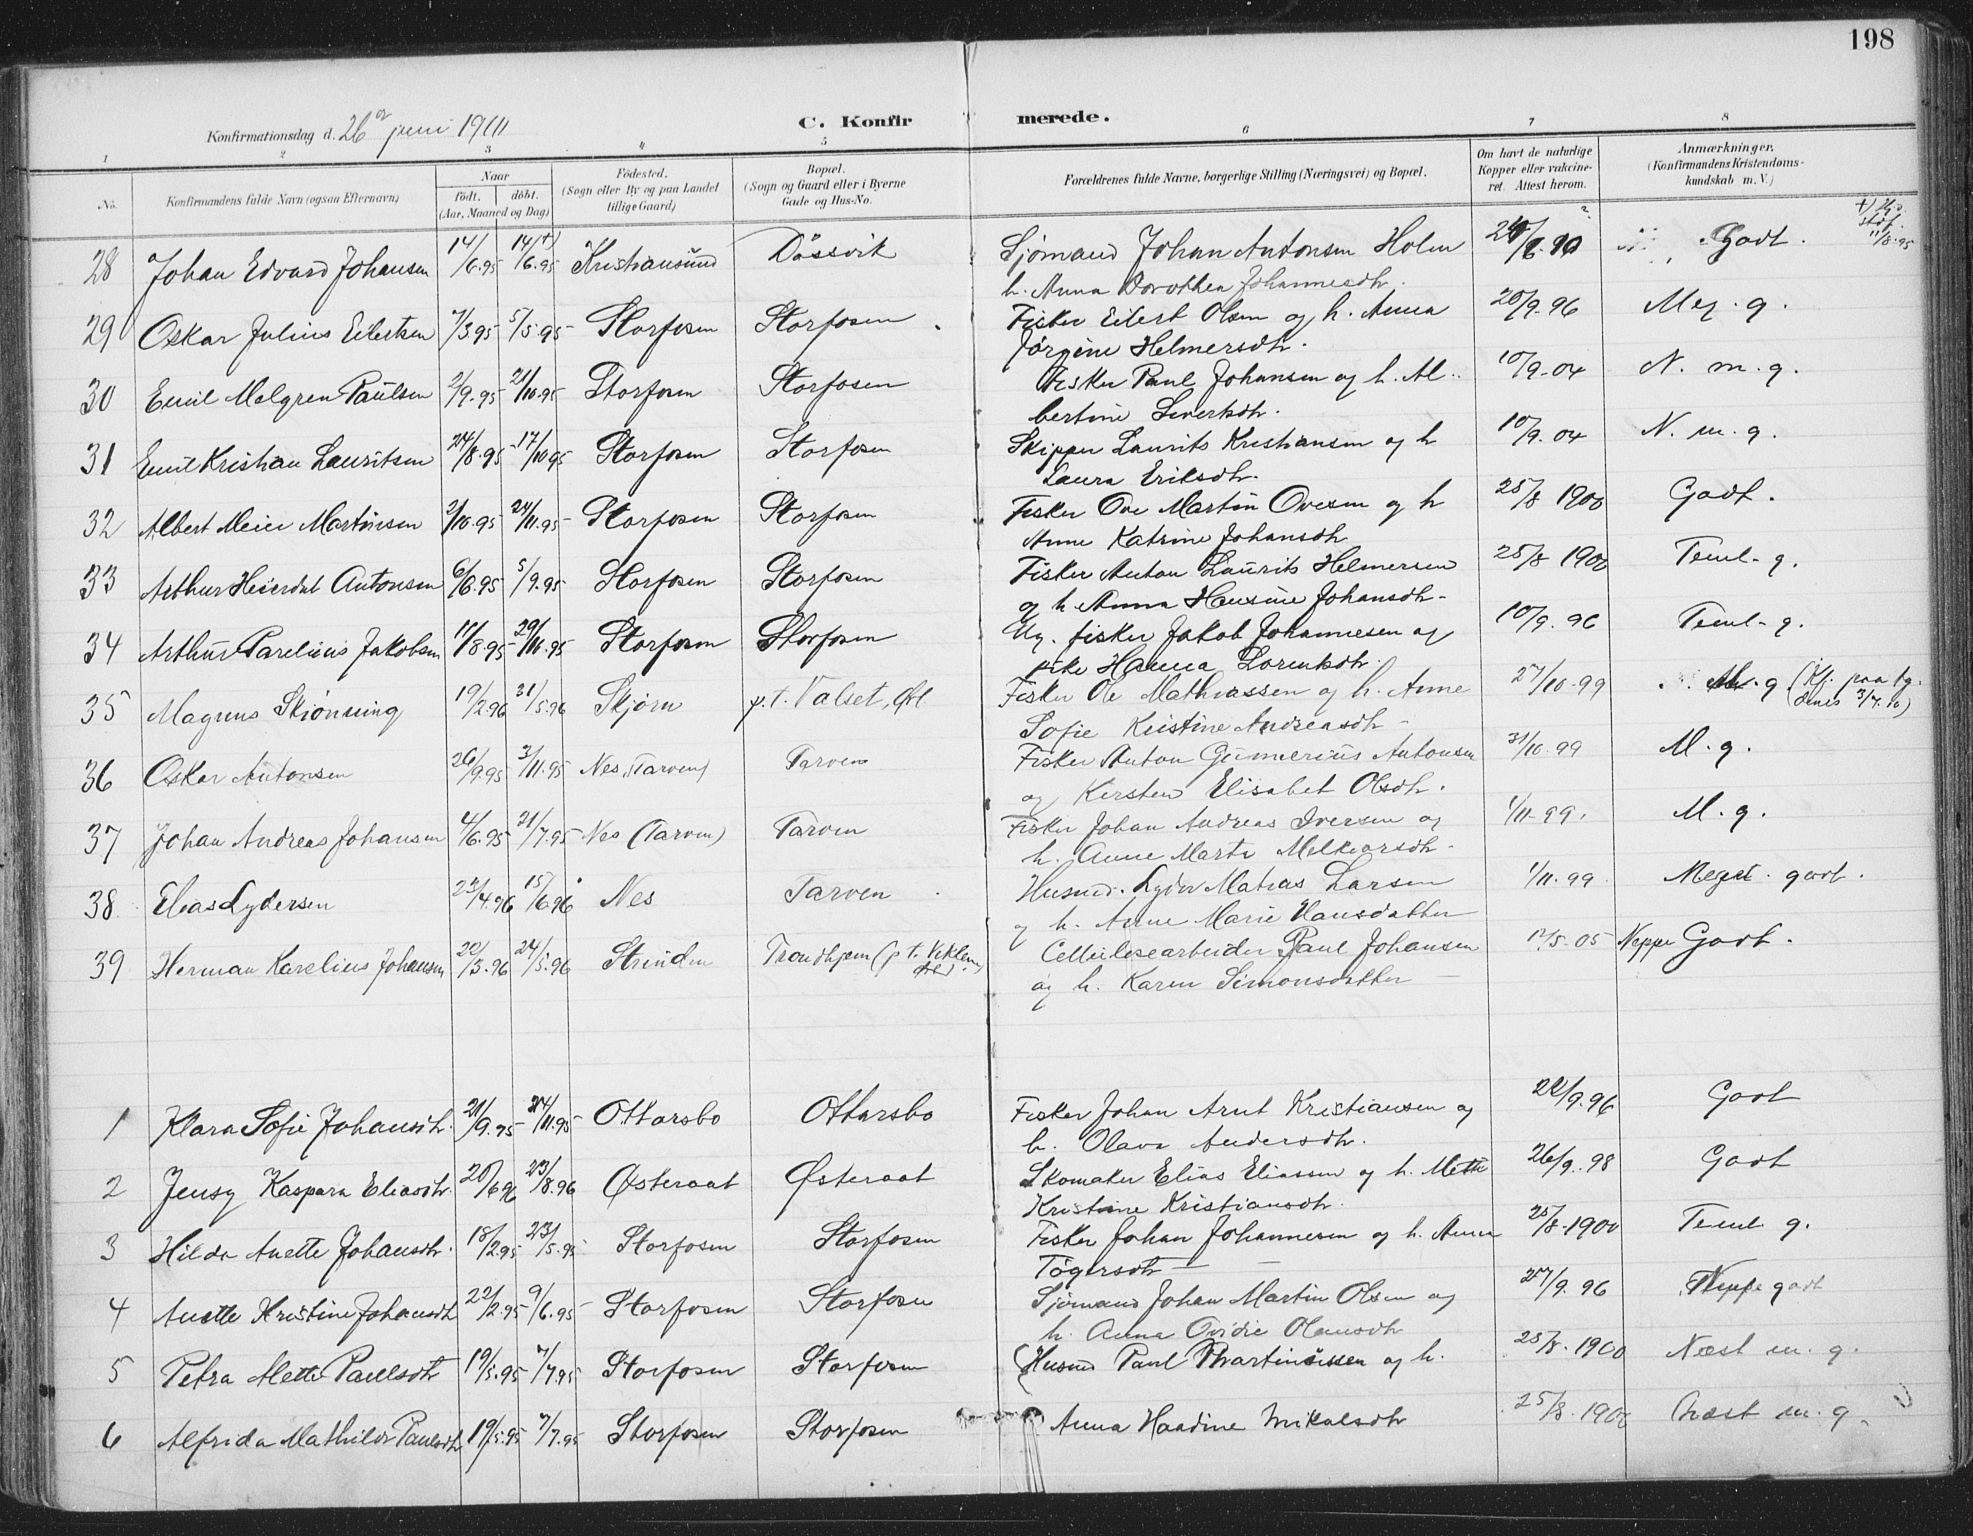 198
Konfirmationsdag d. 26 juni 1910
C. Konfirmerede.
1 2 3 4 5 6 7 8
No.
Konfirmandens fulde Navn (ogsaa Efternavn)
Naar
født. døbt.
(Aar, Maaned og Dag)
Fødested.
(Sogn eller By og paa Landet
tillige Gaard)
Bopæl.
(Sogn og Gaard eller i Byerne
Gade og Hus-No.
Forældrenes fulde Navne, borgerlige Stilling (Næringsvei) og Bopæl.
Om havt de naturlige
Kopper eller vakcine-
ret. Attest herom.
Anmærkninger.
(Konfirmandens Kristendoms-
kundskab m. V.)
28 Johan Edvard Johansen 14/6.95 14/6.95 +) Kristiansund Døsvik Sjømand Johan Antonsen Holm Godt. +) Hjd. stadf. 11/8.95
h. Anna Dorothea Johannesdtr.
29 Oskar Julius Eilertsen 7/3.95 5/5.95 Storfosen Storfosen Fisker Eilert Olsen og h. Anna 20/9.96 Meg. g.
Jørgine Helmersdtr.
30 Emil Melgren Paulsen 2/9.95 21/10.95 Storfosen Storfosen Fisker Paul Johansen og h. Al- 10/9.04 N. m. g.
bertine Sivertsdtr.
31 Emil Kristian Lauritsen 24/8.95 17/10.95 Storfosen Storfosen Skipper Laurits Kristiansen og h 10/9.04 N. m. g.
Laura Eriksdtr.
32 Albert Meier Martinsen 2/10.95 24/11.95 Storfosen Storfosen Fisker Ove Martin Ovesen og h 25/8 1900 Godt.
Anne Katrine Johansdtr
33 Arthur Heierdal Antonsen 6/6.95 5/9.95 Storfosen Storfosen Fisker Anton Laurits Helmersen 25/8 1900 Teml. g.
og h. Anna Hansine Johansdtr.
34 Arthur Parelius Jakobsen 11/8.95 29/10.95 Storfosen Storfosen Ug. fisker Jakob Johannesen og 10/9.96 Teml. g.
pike Hanna Lorentsdtr.
35 Magnus Skjønning 19/2.96 31/5.96 Skjørn p.t. Valset, Ørl. Fisker Ole Mathiassen og h. Anne 27/10.99 g (Kf. paa 3/7.10)
Sofie Kristine Andreasdtr
36 Oskar Antonsen 26/9.95 3/11.95 Nes (Tarven) Tarven Fisker Anton Gunnerius Antonsen 31/10.99 M. g.
og Kirsten Elisabet Olsdtr.
37 Johan Andreas Johansen 4/6.95 21/7.95 Nes (Tarven) Tarven Fisker Johan Andreas Iversen og 1/11.99. M. g.
h. Anne Marta Melkiorsdtr.
38 Elias Lydersen 23/4.96 15/6.96 Nes Tarven Husmd. Lyder Matias Larsen 1/11.99 Meget godt.
og h. Anne Marie Hansdatter
39 Herman Karelius Johansen 20/3.96 24/5.96 Strinden Trondhjem (p.t. Veklem Ørl) Cellulosearbeider Paul Johansen 12/5.05 Neppe Godt.
og h. Karen Simonsdatter
1 Klara Sofie Johansdtr. 21/9.95 24/11.95 Ottarsbo Ottarsbo Fisker Johan Arnt Kristiansen og 22/9.96 Godt
h. Olava Andersdtr.
2 Jensy Kaspara Eliasdtr. 20/6.96 23/8.96 Østeraat Østeraat Skomaker Elias Eliassen og h. Mette 26/9.98 Godt
Kristine Kristiansdtr.
3 Hilda Anette Johansdtr. 18/2.95 23/5.95 Storfosen Storfosen Fisker Johan Johannesen og h. Anna 25/8.1900 Teml g.
Tøgersdtr
4 Anette Kristine Johansdtr 22/2.95 9/6.95 Storfosen Storfosen Sjømand Johan Martin Olsen og 27/9.96 Neppe godt
h. Anna Ovidie Olausdtr
5 Petra Mette Paulsdtr 19/5.95 7/7.95 Storfosen Storfosen (Husmd Paul Martinussen og h. 25/8.1900 Næst m. g.
6 Alfrida Mathilde Paulsdtr 19/5.95 7/7.95 Storfosen Storfosen Anna Haadine Mikalsdtr 25/8.1900 Næst m. g.